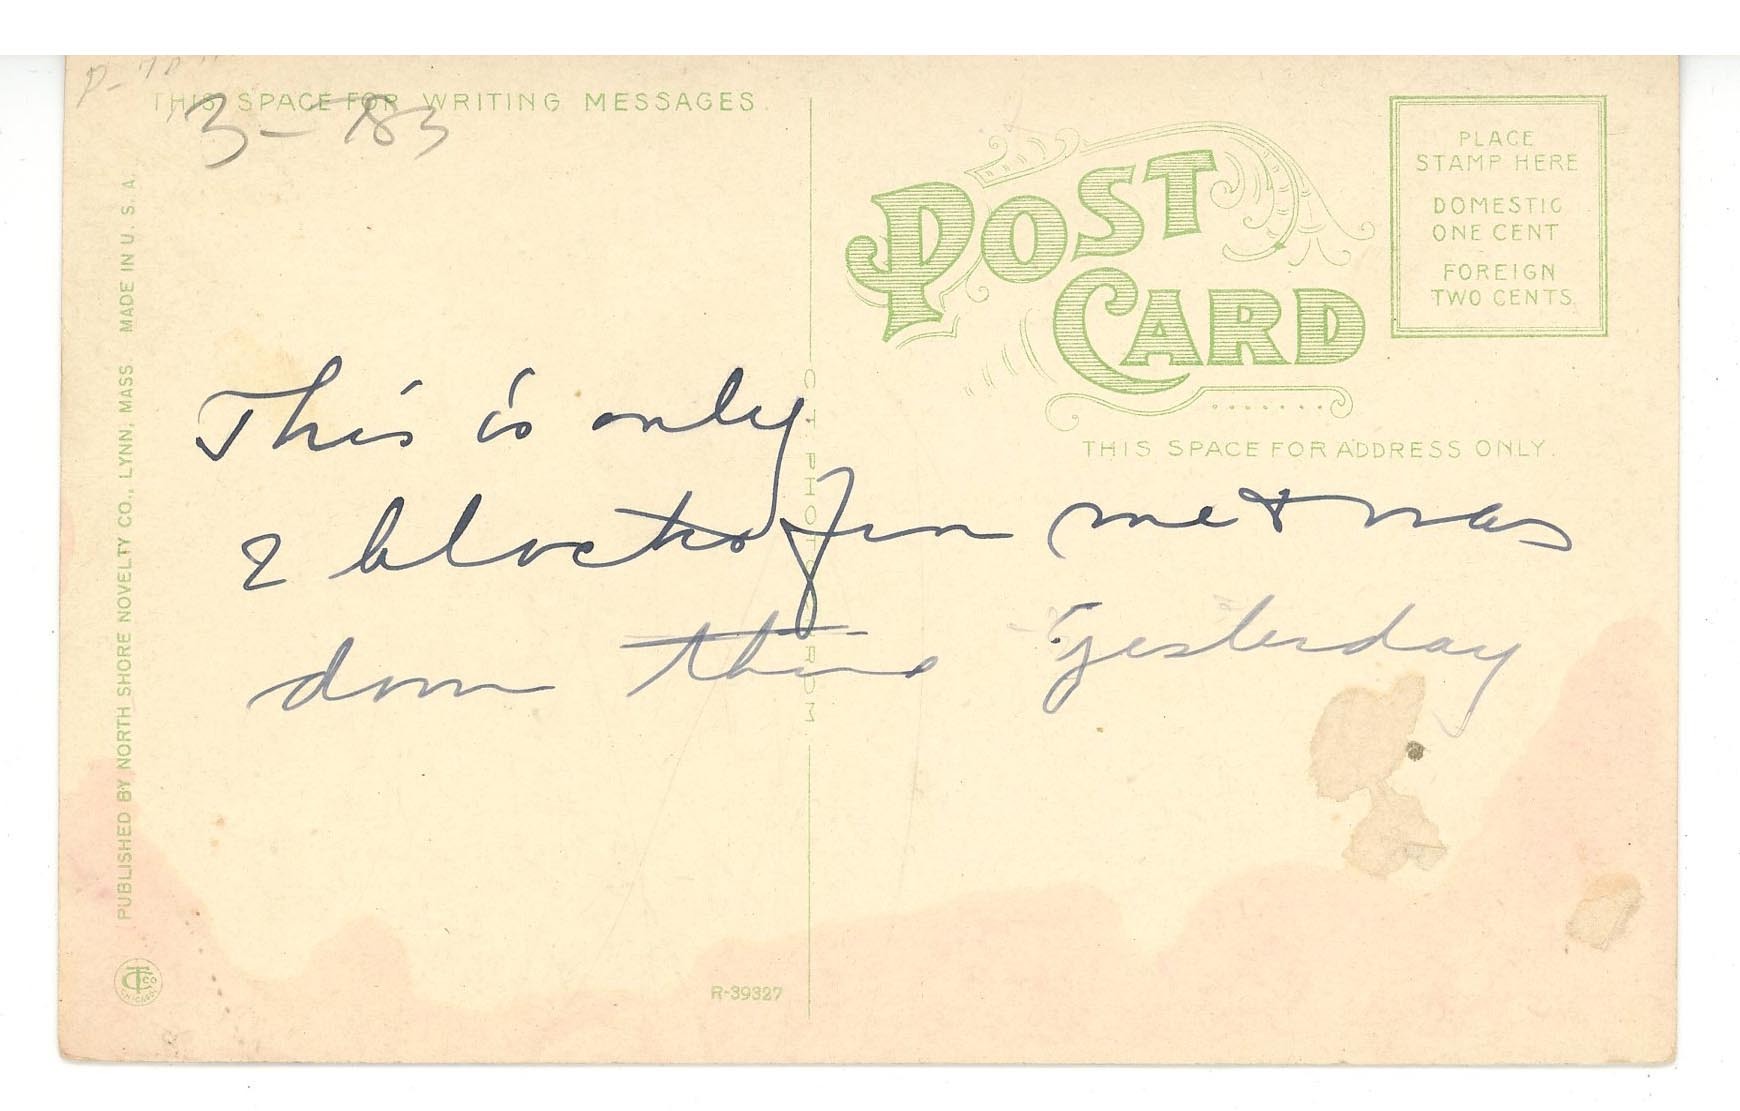 THIS SPACE FOR WRITING MESSAGES
3-783
POST
CARD
PLACE
STAMP HERE
DOMESTIC
ONE CENT
FOREIGN
TWO CENTS
THIS SPACE FOR ADDRESS ONLY.
This is only
2 blocks from me & was
down there yesterday
PUBLISHED BY NORTH SHORE NOVELTY CO., LYNN, MASS. MADE IN U. S. A.
C. T. PHOTOCHROM
R-39327